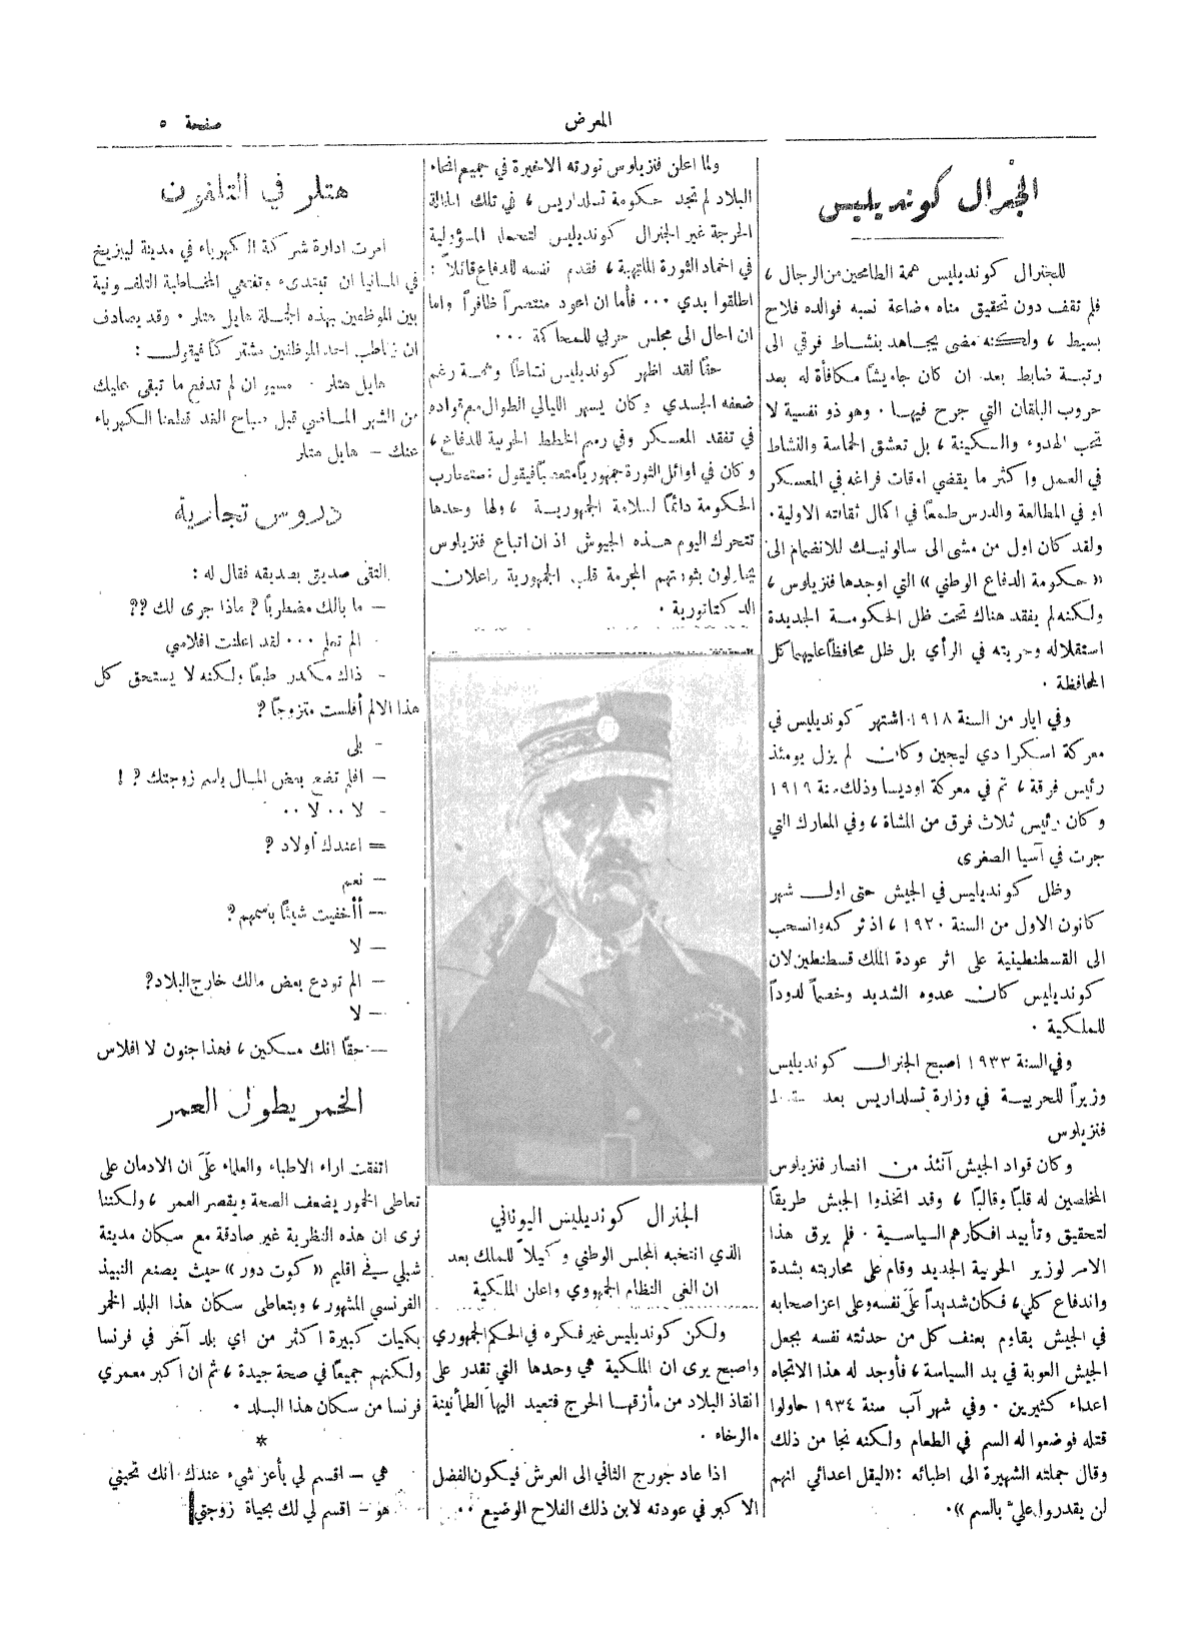 المعرض
صفحة ٥
الجنرال كونديليس
للجنرال كونديليس همة الطامحين من الرجال ،
فلم تقف دون تحقيق مناه وضاعة نسبه فوالده فلاح
بسيط ، ولكنه مضى يجاهد بنشاط فرقي الى
رتبة ضابط بعد ان كان جاويشاً مكافأة له بعد
حروب البلقان التي جرح فيها . وهو ذو نفسية لا
تحب الهدوء والسكينة ، بل تعشق الحماسة والنشاط
في العمل واكثر ما يقضي اوقات فراغه في المعسكر
او في المطالعة والدرس طمعاً في اكمال ثقافته الاولية .
ولقد كان اول من مشى الى سالونيك للانضمام الى
« حكومة الدفاع الوطني » التي اوجدها فنزيلوس ،
ولكنه لم يفقد هناك تحت ظل الحكومة الجديدة
استقلاله وحريته في الرأي بل ظل محافظاً عليهما كل
المحافظة .
وفي ايار من السنة ١٩١٨ اشتهر كونديليس في
معركة اسكرا دي ليجين وكان لم يزل يومئذ
رئيس فرقة ، ثم في معركة اوديسا وذلك سنة ١٩١٩
وكان رئيس ثلاث فرق من المشاة ، وفي المعارك التي
جرت في آسيا الصغرى
وظل كونديليس في الجيش حتى اول شهر
كانون الاول من السنة ١٩٢٠ ، اذ تركه وانسحب
الى القسطنطينية على اثر عودة الملك قسطنطين لان
كونديليس كان عدوه الشديد وخصماً لدوداً
للملكية .
وفي السنة ١٩٣٣ اصبح الجنرال كونديليس
وزيراً للحربية في وزارة تسلداريس بعد سقوط
فنزيلوس
وكان قواد الجيش آنئذ من انصار فنزيلوس
المخلصين له قلباً وقالباً ، وقد اتخذوا الجيش طريقاً
لتحقيق وتأييد افكارهم السياسية . فلم يرق هذا
الامر لوزير الحربية الجديد وقام على محاربته بشدة
واندفاع كلي ، فكان شديداً على نفسه وعلى اعز اصحابه
في الجيش يقاوم بعنف كل من حدثته نفسه بجعل
الجيش العوبة في يد السياسة ، فأوجد له هذا الاتجاه
اعداء كثيرين . وفي شهر آب سنة ١٩٣٤ حاولوا
قتله فوضعوا له السم في الطعام ولكنه نجا من ذلك
وقال جملته الشهيرة الى اطبائه : « ليقل اعدائي انهم
لن يقدروا عليّ بالسم » .
ولما اعلن فنزيلوس ثورته الاخيرة في جميع انحاء
البلاد لم تجد حكومة تسلداريس ، في تلك الحالة
الحرجة غير الجنرال كونديليس لتحمل المسؤولية
في اخماد الثورة الملتهبة ، فقدم نفسه للدفاع قائلاً :
اطلقوا يدي ... فأما ان اعود منتصراً ظافراً واما
ان احال الى مجلس حربي للمحاكمة ...
حقاً لقد اظهر كونديليس نشاطاً وهمة رغم
ضعفه الجسدي وكان يسهر الليالي الطوال مع قواده
في تفقد المعسكر وفي رسم الخطط الحربية للدفاع ،
وكان في اوائل الثورة جمهورياً متعصباً فيقول : ستحارب
الحكومة دائماً لسلامة الجمهورية ، ولها وحدها
تتحرك اليوم هذه الجيوش اذ ان اتباع فنزيلوس
يحاولون بثورتهم المجرمة قلب الجمهورية واعلان
الدكتاتورية .
الجنرال كونديليس اليوناني
الذي انتخبه المجلس الوطني وكيلاً للملك بعد
ان الغى النظام الجمهوري واعلن الملكية
ولكن كونديليس غير فكره في الحكم الجمهوري
واصبح يرى ان الملكية هي وحدها التي تقدر على
انقاذ البلاد من مأزقها الحرج فتعيد اليها الطمأنينة
والرخاء .
اذا عاد جورج الثاني الى العرش فيكون الفضل
الاكبر في عودته لابن ذلك الفلاح الوضيع ..
هتلر في التلفون
امرت ادارة شركة الكهرباء في مدينة ليبزيغ
في المانيا ان تبتدىء وتنتهي المخاطبة التلفونية
بين الموظفين بهذه الجملة هايل هتلر . وقد يصادف
ان يخاطب احد الموظفين مشتركاً فيقول :
هايل هتلر . مسيو ان لم تدفع ما تبقى عليك
من الشهر الماضي قبل صباح الغد قطعنا الكهرباء
عنك – هايل هتلر
دروس تجارية
التقى صديق بصديقه فقال له :
– ما بالك مضطرباً ؟ ماذا جرى لك ؟؟
الم تعلم ... لقد اعلنت افلاسي
- ذاك مكدر طبعاً ولكنه لا يستحق كل
هذا الالم أفلست متزوجاً ؟
- بلى
– افلم تضع بعض المال باسم زوجتك ؟ !
- لا .. لا ..
= اعندك أولاد ؟
– نعم
– أأخفيت شيئاً باسمهم ؟
– لا
– الم تودع بعض مالك خارج البلاد ؟
– لا
– حقاً انك مسكين ، فهذا جنون لا افلاس
الخمر يطول العمر
اتفقت اراء الاطباء والعلماء على ان الادمان على
تعاطى الخمور يضعف الصحة ويقصر العمر ، ولكننا
نرى ان هذه النظرية غير صادقة مع سكان مدينة
شبلي في اقليم « كوت دور » حيث يصنع النبيذ
الفرنسي المشهور ، ويتعاطى سكان هذا البلد الخمر
بكميات كبيرة اكثر من اي بلد آخر في فرنسا
ولكنهم جميعاً في صحة جيدة ، ثم ان اكبر معمري
فرنسا من سكان هذا البلد .
*
هي – اقسم لي بأعز شيء عندك انك تحبني
هو – اقسم لي لك بحياة زوجتي